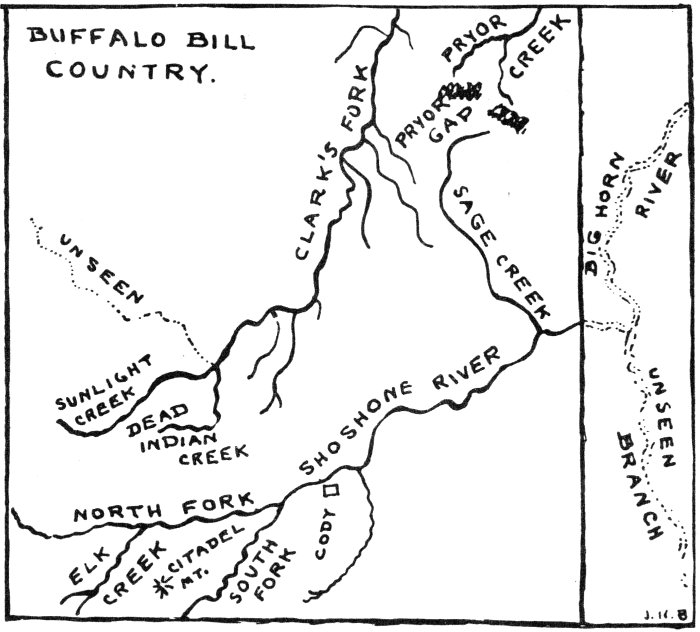 BUFFALO BILL
COUNTRY.
PRYOR
CREEK
PRYOR
GAP
CLARK'S FORK
SAGE CREEK
BIG HORN
RIVER
UNSEEN
SUNLIGHT
CREEK
DEAD
INDIAN
CREEK
SHOSHONE RIVER
UNSEEN
BRANCH
NORTH FORK
ELK
CREEK
CITADEL
MT.
SOUTH
FORK
CODY
J.K.B